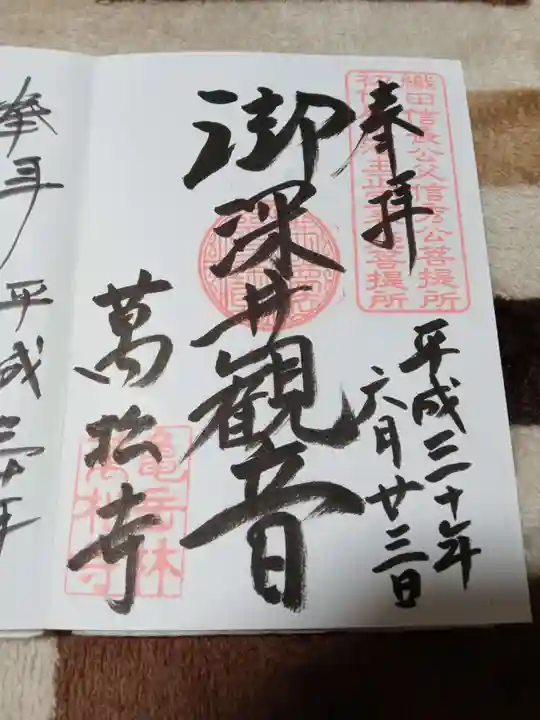 奉拝
織田信長公父信秀公菩提所
菩提所
平成三十年
六月廿三日
御深井観音
萬松寺
亀岳林
萬松寺
奉拝
平成三十年